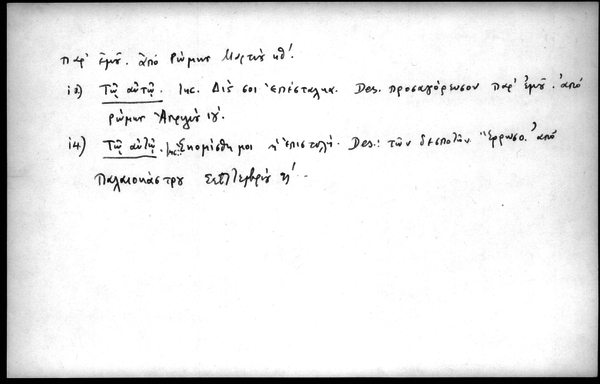 παρ' ἐμοῦ. ἀπὸ Ῥώμης Μαρτίου κθ'.
13) Τῷ αὐτῷ. Inc. Δίς σοι ἐπέσταλκα. Des. προσαγόρευσον παρ' ἐμοῦ. ἀπὸ
Ῥώμης Ἀπριλίου ιγ'.
14) Τῷ αὐτῷ. Inc. Ἐκομίσθη μοι ἡ ἐπιστολή. Des.: τῶν δεσποτῶν. Ἔρρωσο. ἀπὸ
Παλαιοκάστρου Σεπτεμβρίου η'.